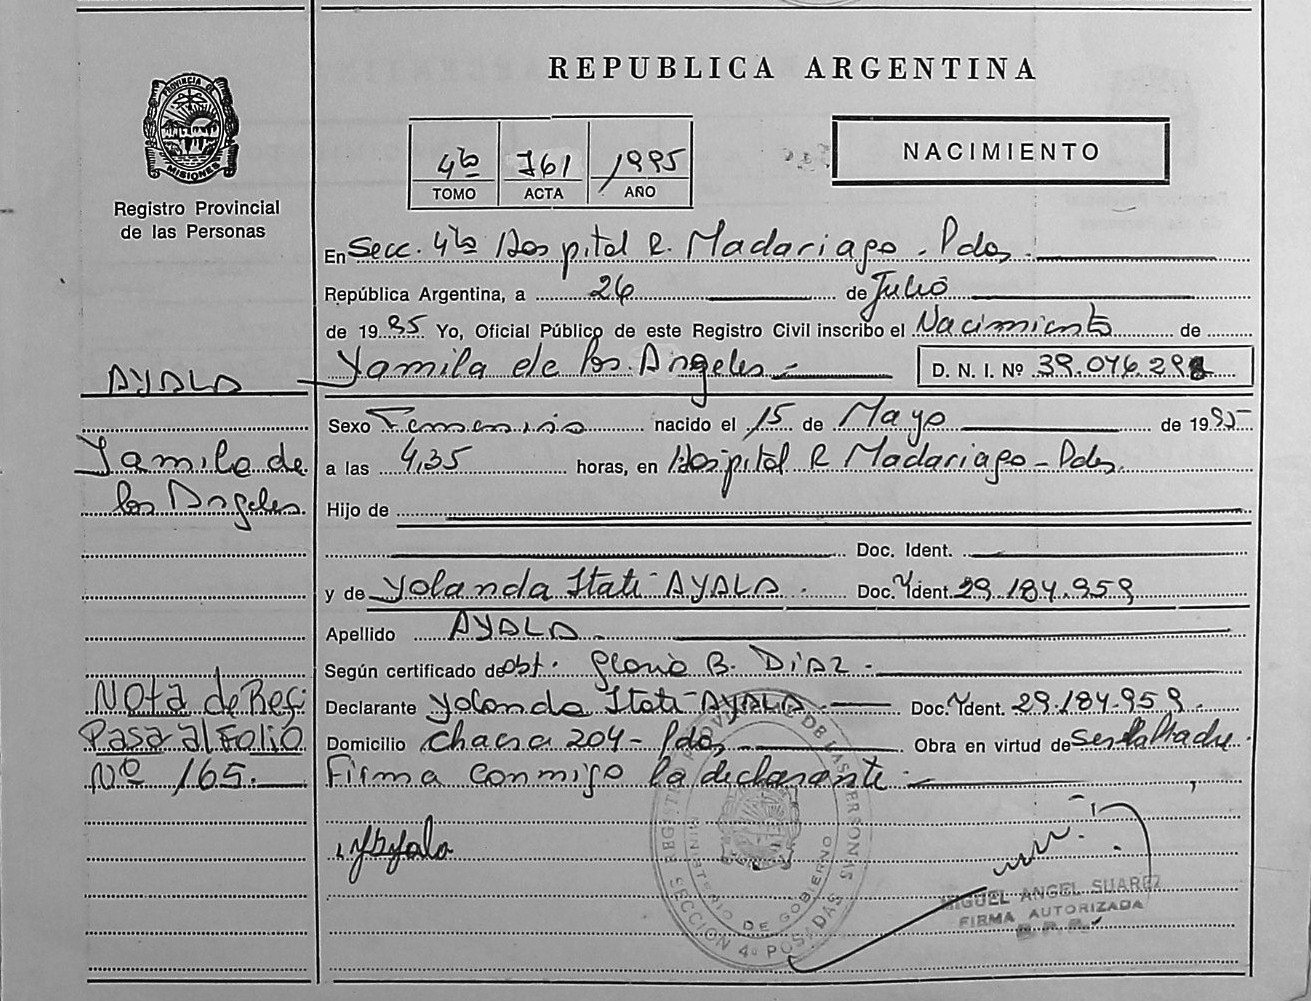 REPUBLICA ARGENTINA
PROVINCIA DE MISIONES
Registro Provincial
de las Personas
4to 761 1995
TOMO ACTA AÑO
NACIMIENTO
En Secc. 4ta Hospital R. Madariaga - Pdas.
República Argentina, a 26 de Julio
de 1995 Yo, Oficial Público de este Registro Civil inscribo el Nacimiento de
Yamila de los Angeles D. N. I. Nº 39.076.298
AYALA
Yamila de
los Angeles
Sexo Femenino nacido el 15 de Mayo de 1995
a las 4,35 horas, en Hospital R Madariaga - Pdas.
Hijo de
Doc. Ident.
y de Yolanda Itati AYALA. Doc. Ident. 29.184.959
Apellido AYALA.
Según certificado de obt. Gloria B. DIAZ.
Declarante Yolanda Itati AYALA Doc. Ident. 29.184.959.
Domicilio Chacra 204 - Pdas. Obra en virtud de ser la Madre.
Firma conmigo la declarante.
Nota de Ref.
Pasa al Folio
Nº 165.
YAyala
REGISTRO PROVINCIAL DE LAS PERSONAS
MINISTERIO DE GOBIERNO
SECCION 4ª POSADAS
MIGUEL ANGEL SUAREZ
FIRMA AUTORIZADA